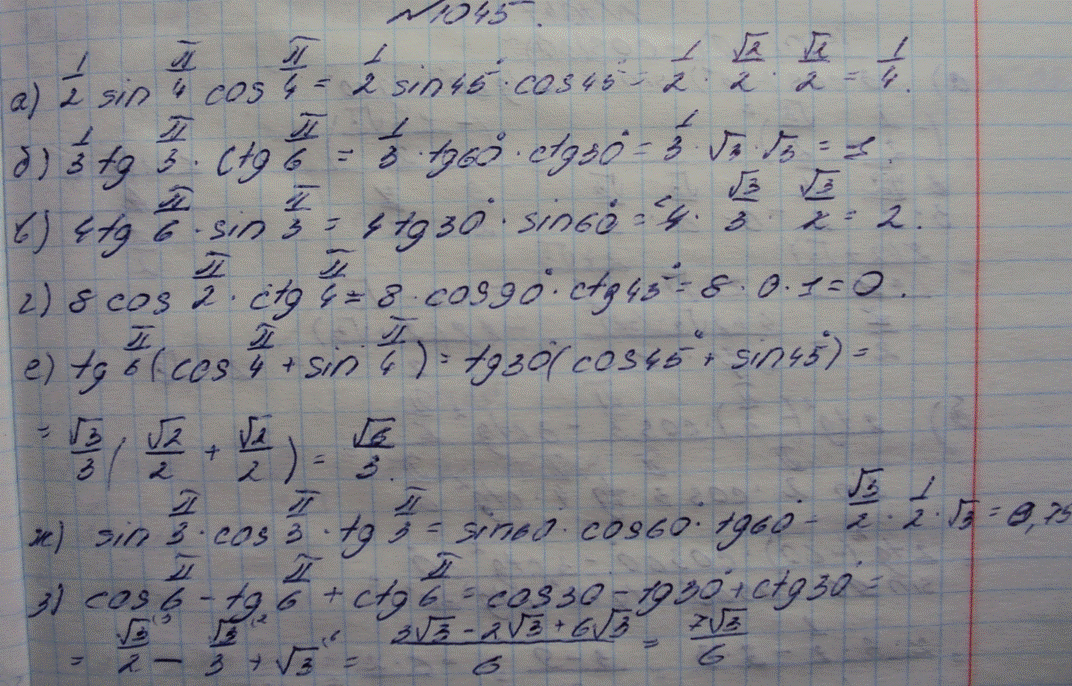 №1045.
а) 1/2 sin π/4 cos π/4 = 1/2 sin45° · cos45° = 1/2 · √2/2 · √2/2 = 1/4.
б) 1/3 tg π/3 · ctg π/6 = 1/3 · tg60° · ctg30° = 1/3 · √3 · √3 = 1.
в) 4tg π/6 · sin π/3 = 4tg30° · sin60° = 4 · √3/3 · √3/2 = 2.
г) 8 cos π/2 · ctg π/4 = 8 · cos90° · ctg45° = 8 · 0 · 1 = 0.
е) tg π/6 (cos π/4 + sin π/4) = tg30°(cos45° + sin45°) =
= √3/3 (√2/2 + √2/2) = √6/3.
ж) sin π/3 · cos π/3 · tg π/3 = sin60 · cos60 · tg60° = √3/2 · 1/2 · √3 = 0,75
з) cos π/6 - tg π/6 + ctg π/6 = cos30° - tg30° + ctg30° =
= √3/2 - √3/3 + √3 = (3√3 - 2√3 + 6√3)/6 = 7√3/6